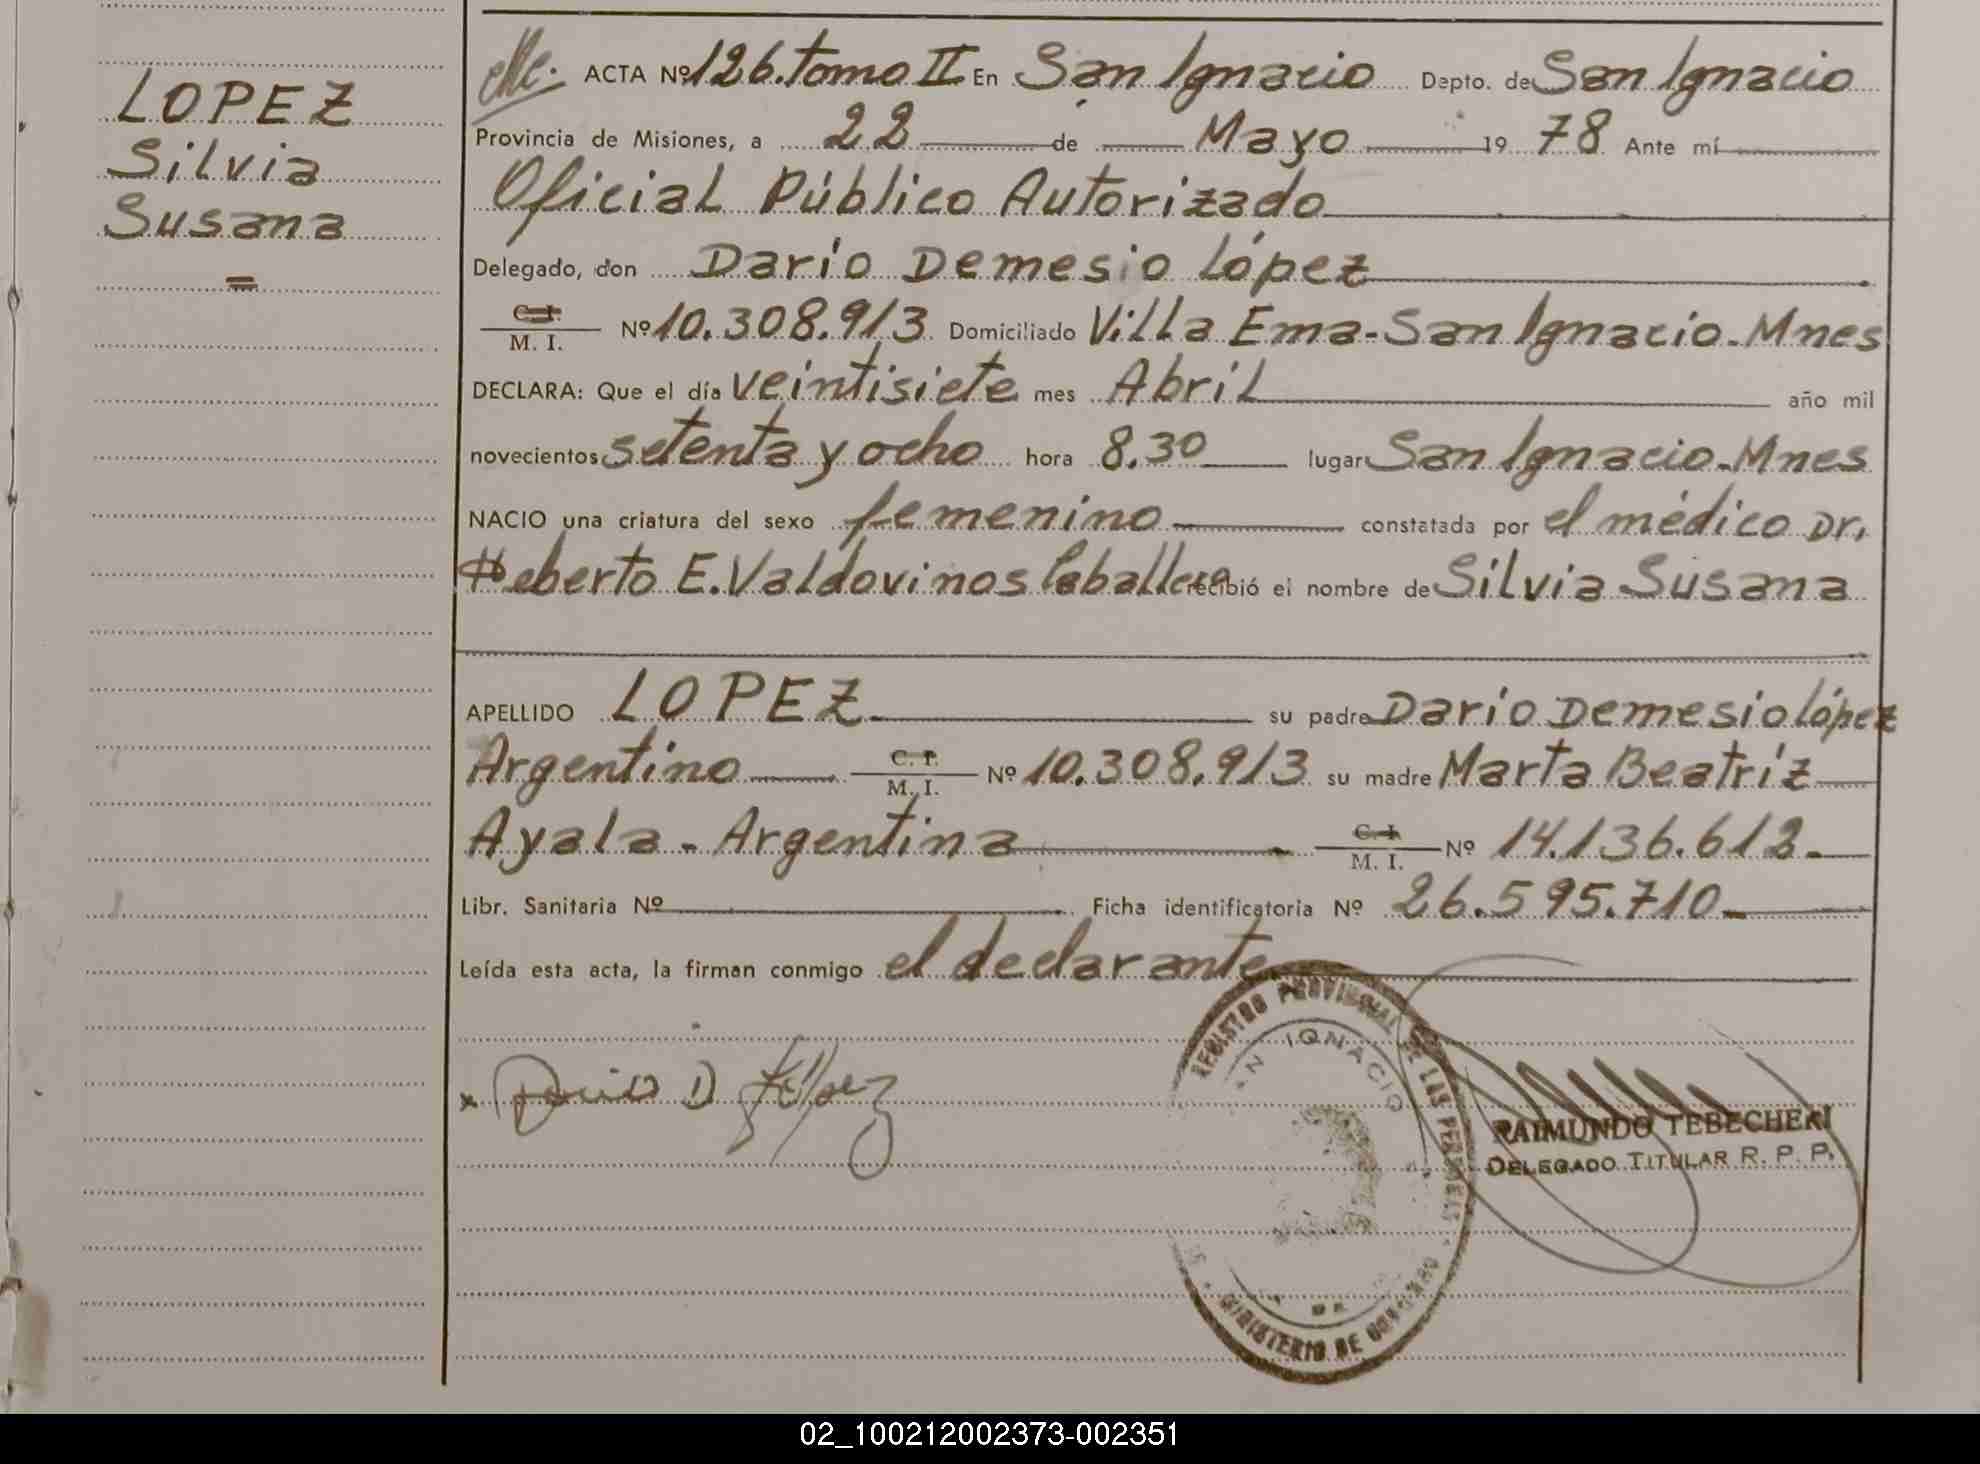 LOPEZ
Silvia
Susana
=
ACTA Nº 126. tomo II En San Ignacio Depto. de San Ignacio
Provincia de Misiones, a 22 de Mayo 19 78 Ante mí
Oficial Público Autorizado
Delegado, don Darío Demesio López
C. I.
M. I. Nº 10.308.913 Domiciliado Villa Ema-San Ignacio-Mnes
DECLARA: Que el día veintisiete mes Abril año mil
novecientos setenta y ocho hora 8.30 lugar San Ignacio-Mnes
NACIO una criatura del sexo femenino constatada por el médico Dr.
Heberto E. Valdovinos Caballero recibió el nombre de Silvia Susana
APELLIDO LOPEZ su padre Darío Demesio López
Argentino C. I. M. I. Nº 10.308.913 su madre Marta Beatríz
Ayala - Argentina C. I. M. I. Nº 14.136.612.
Libr. Sanitaria Nº Ficha identificatoria Nº 26.595.710
Leída esta acta, la firman conmigo el declarante
x Dario D López
REGISTRO PROVINCIAL DE LAS PERSONAS
SAN IGNACIO
MINISTERIO DE GOBIERNO
RAIMUNDO TEBECHERI
DELEGADO TITULAR R. P. P.
02_100212002373-002351